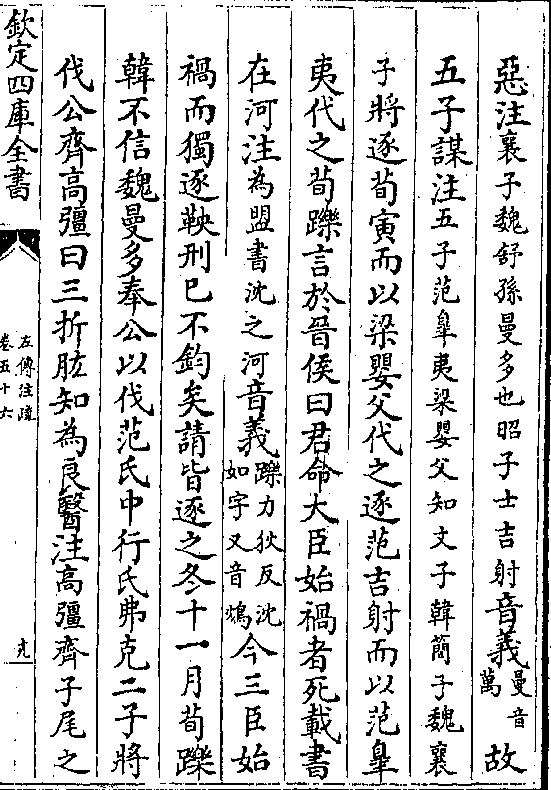 惡注襄子魏舒孫曼多也昭子士吉射音義曼音萬故
五子謀注五子范臯夷梁嬰父知文子韓簡子魏襄
子將逐荀寅而以梁嬰父代之逐范吉射而以范臯
夷代之荀躒言於晉侯曰君命大臣始禍者死載書
在河注為盟書沈之河音義躒力狄反沈如字又音鴆今三臣始
禍而獨逐鞅刑已不鈞矣請皆逐之冬十一月荀躒
韓不信魏曼多奉公以伐范氏中行氏弗克二子將
伐公齊高彊曰三折肱知為良醫注高彊齊子尾之
欽定四庫全書
左傳注疏
卷五十六